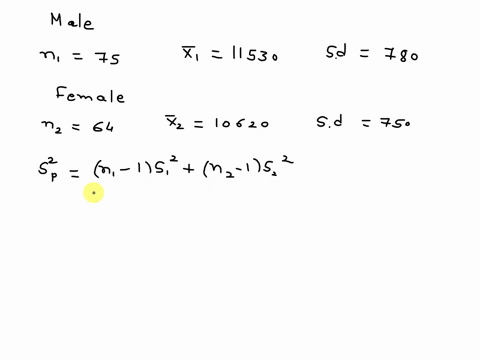 Male
n₁ = 75 x̄₁ = 11530 S.d = 780
Female
n₂ = 64 x̄₂ = 10620 S.d = 750
Sₚ² = (n₁ - 1) S₁² + (n₂ - 1) S₂²